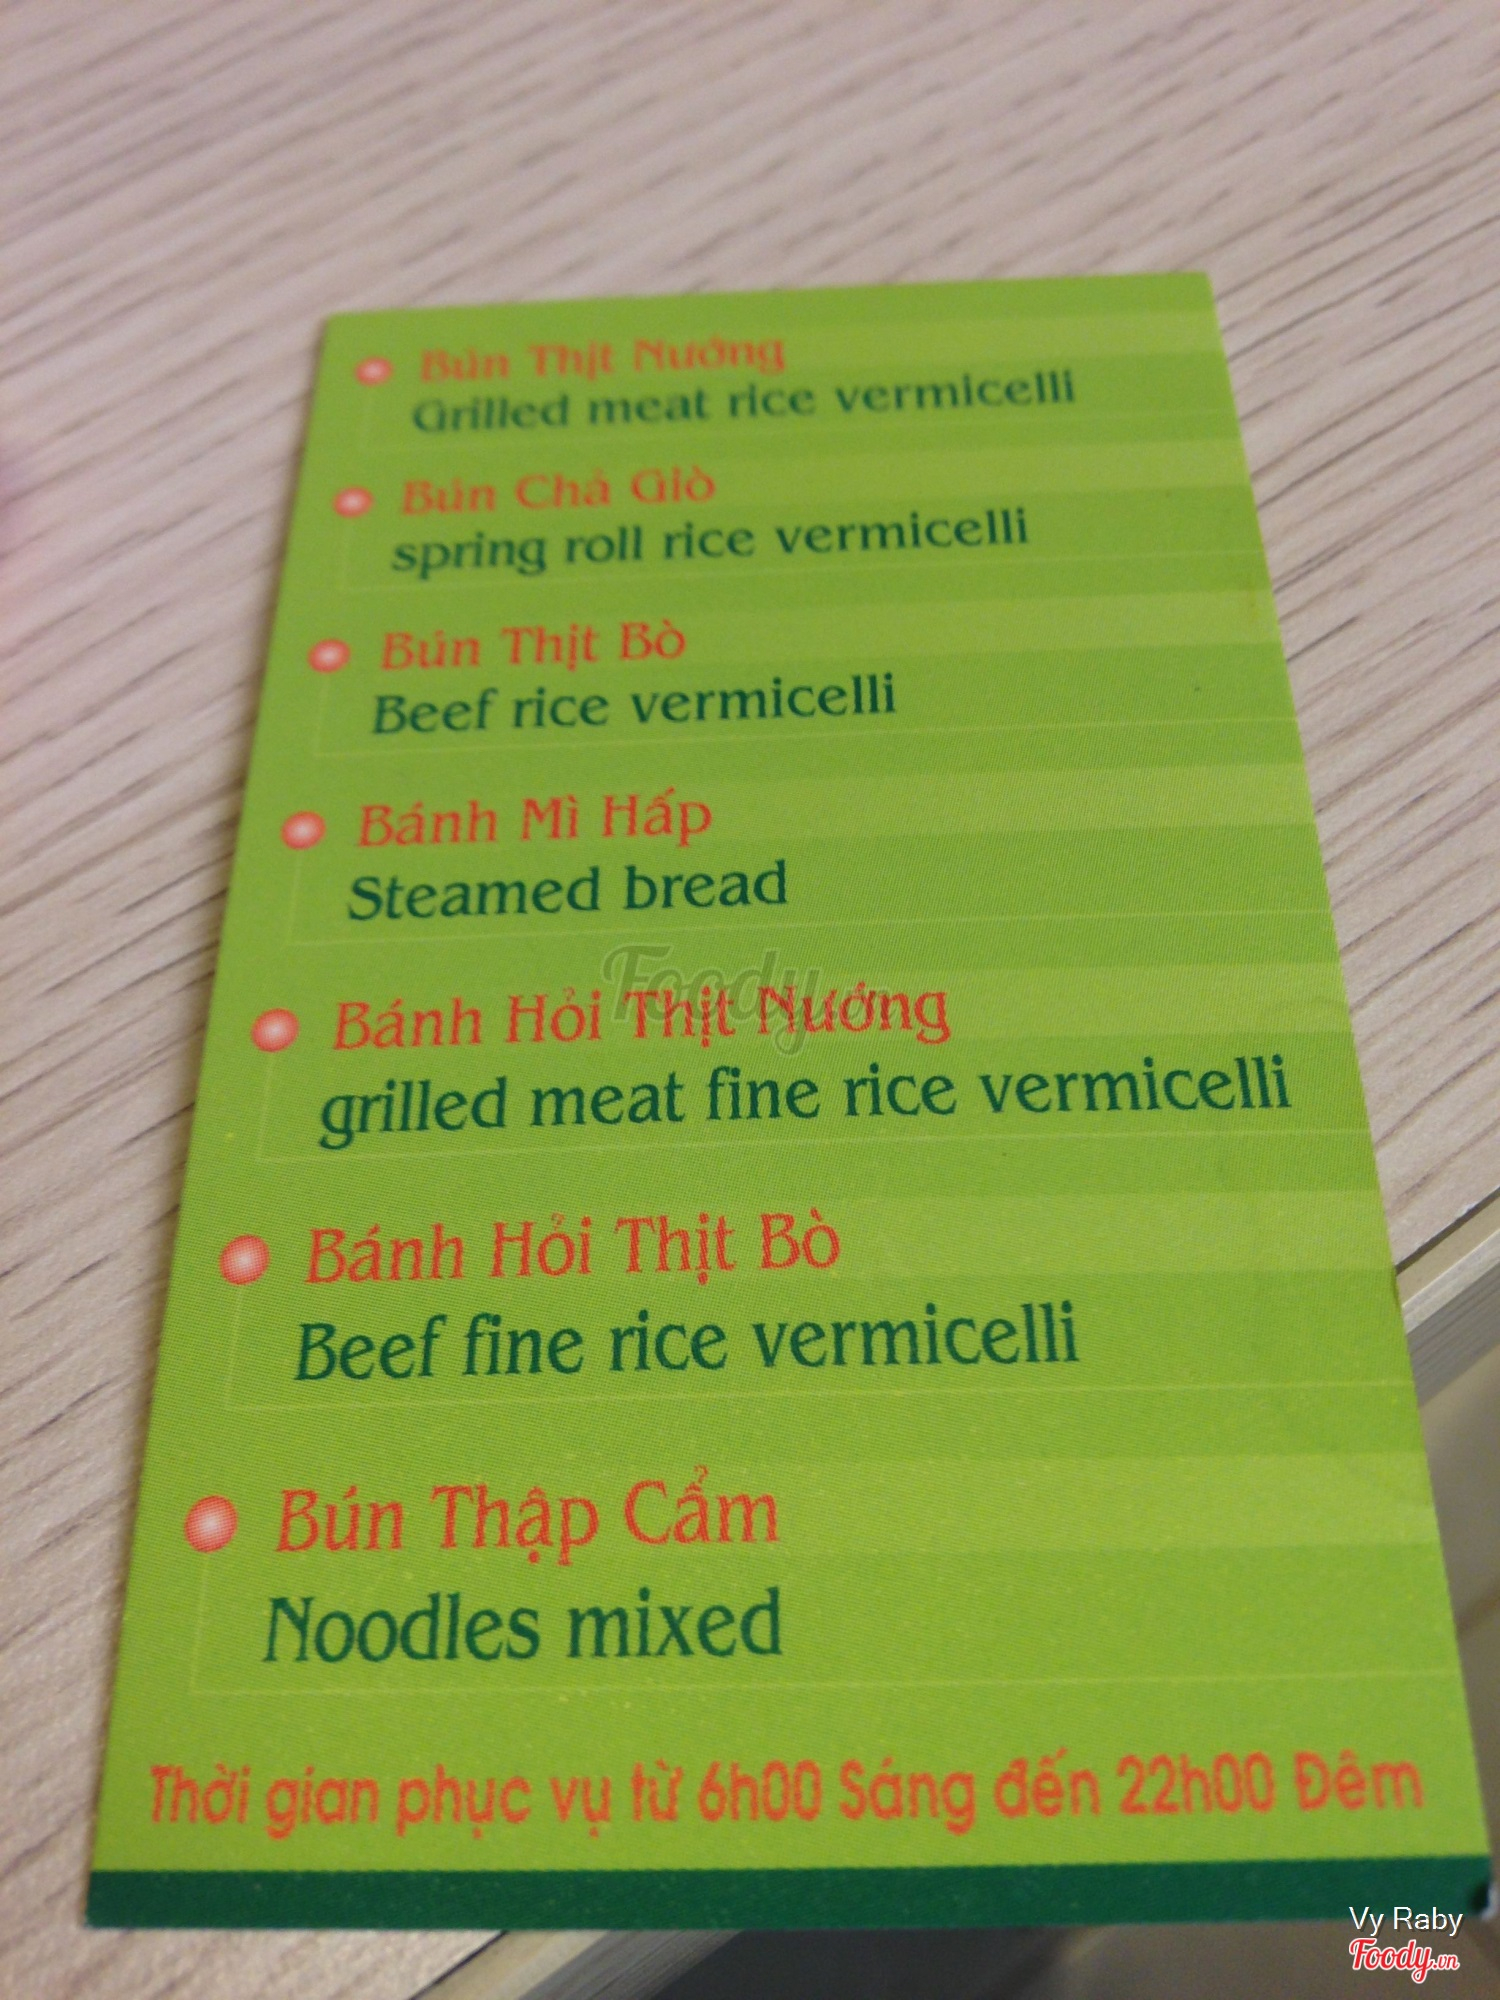 Bún Thịt Nướng
Grilled meat rice vermicelli
Bún Chả Giò
spring roll rice vermicelli
Bún Thịt Bò
Beef rice vermicelli
Bánh Mì Hấp
Steamed bread
Foody.vn
Bánh Hỏi Thịt Nướng
grilled meat fine rice vermicelli
Bánh Hỏi Thịt Bò
Beef fine rice vermicelli
Bún Thập Cẩm
Noodles mixed
Thời gian phục vụ từ 6h00 Sáng đến 22h00 Đêm
Vy Raby
Foody.vn